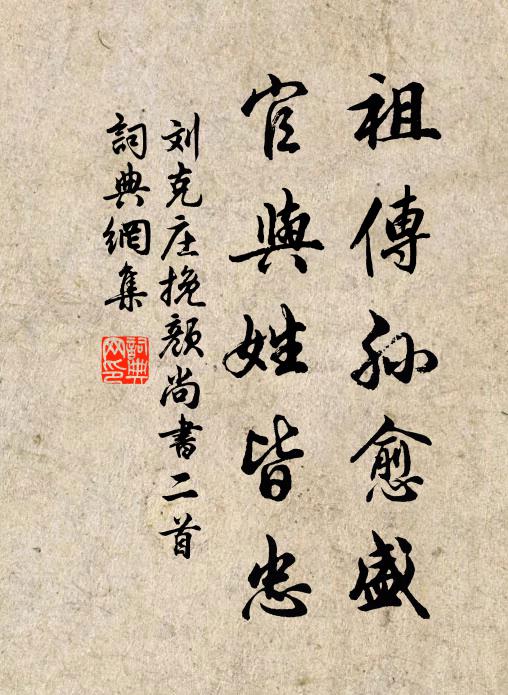 祖傳孫愈盛
官與姓皆忠
刘克庄挽颜尚書二首
詞典網集
詞典
网印